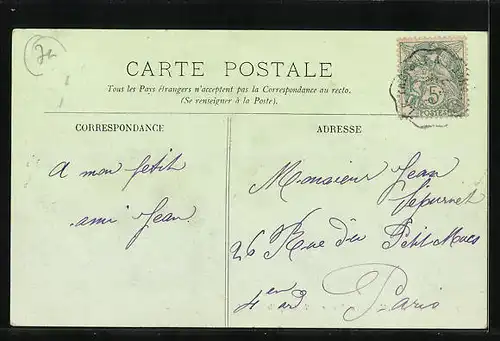 CARTE POSTALE
Tous les Pays étrangers n'acceptent pas la Correspondance au recto.
(Se renseigner à la Poste).
5c
POSTES
CORRESPONDANCE
A mon petit
ami Jean
ADRESSE
Monsieur Jean
26 Rue du Petit Musc
4 em
Paris